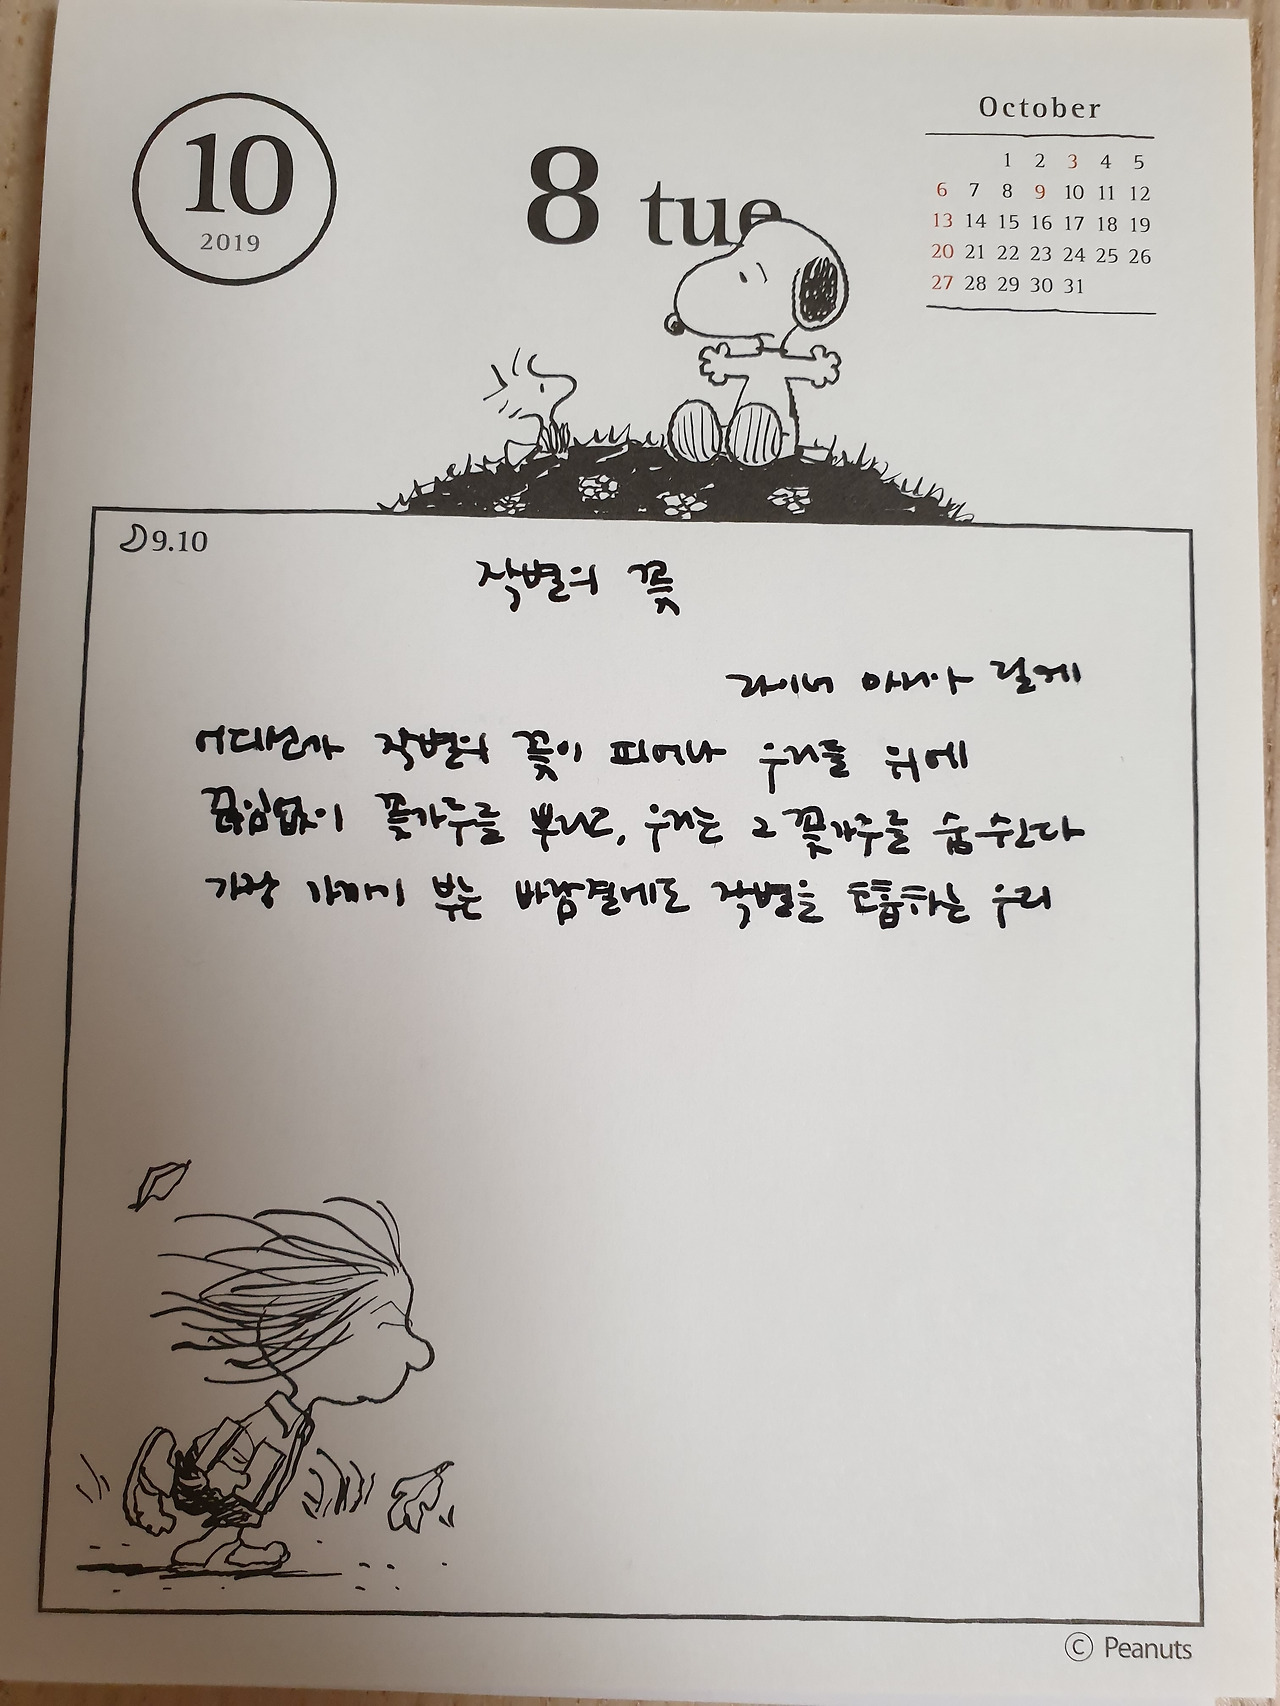 10
2019
8 tue
October
1 2 3 4 5
6 7 8 9 10 11 12
13 14 15 16 17 18 19
20 21 22 23 24 25 26
27 28 29 30 31
9.10
작별의 꽃
라이너 마리아 릴케
어디선가 작별의 꽃이 피어나 우리들 위에
끊임없이 꽃가루를 뿌리고, 우리는 그 꽃가루를 숨쉰다
가장 가까이 부는 바람결에도 작별을 호흡하는 우리
© Peanuts